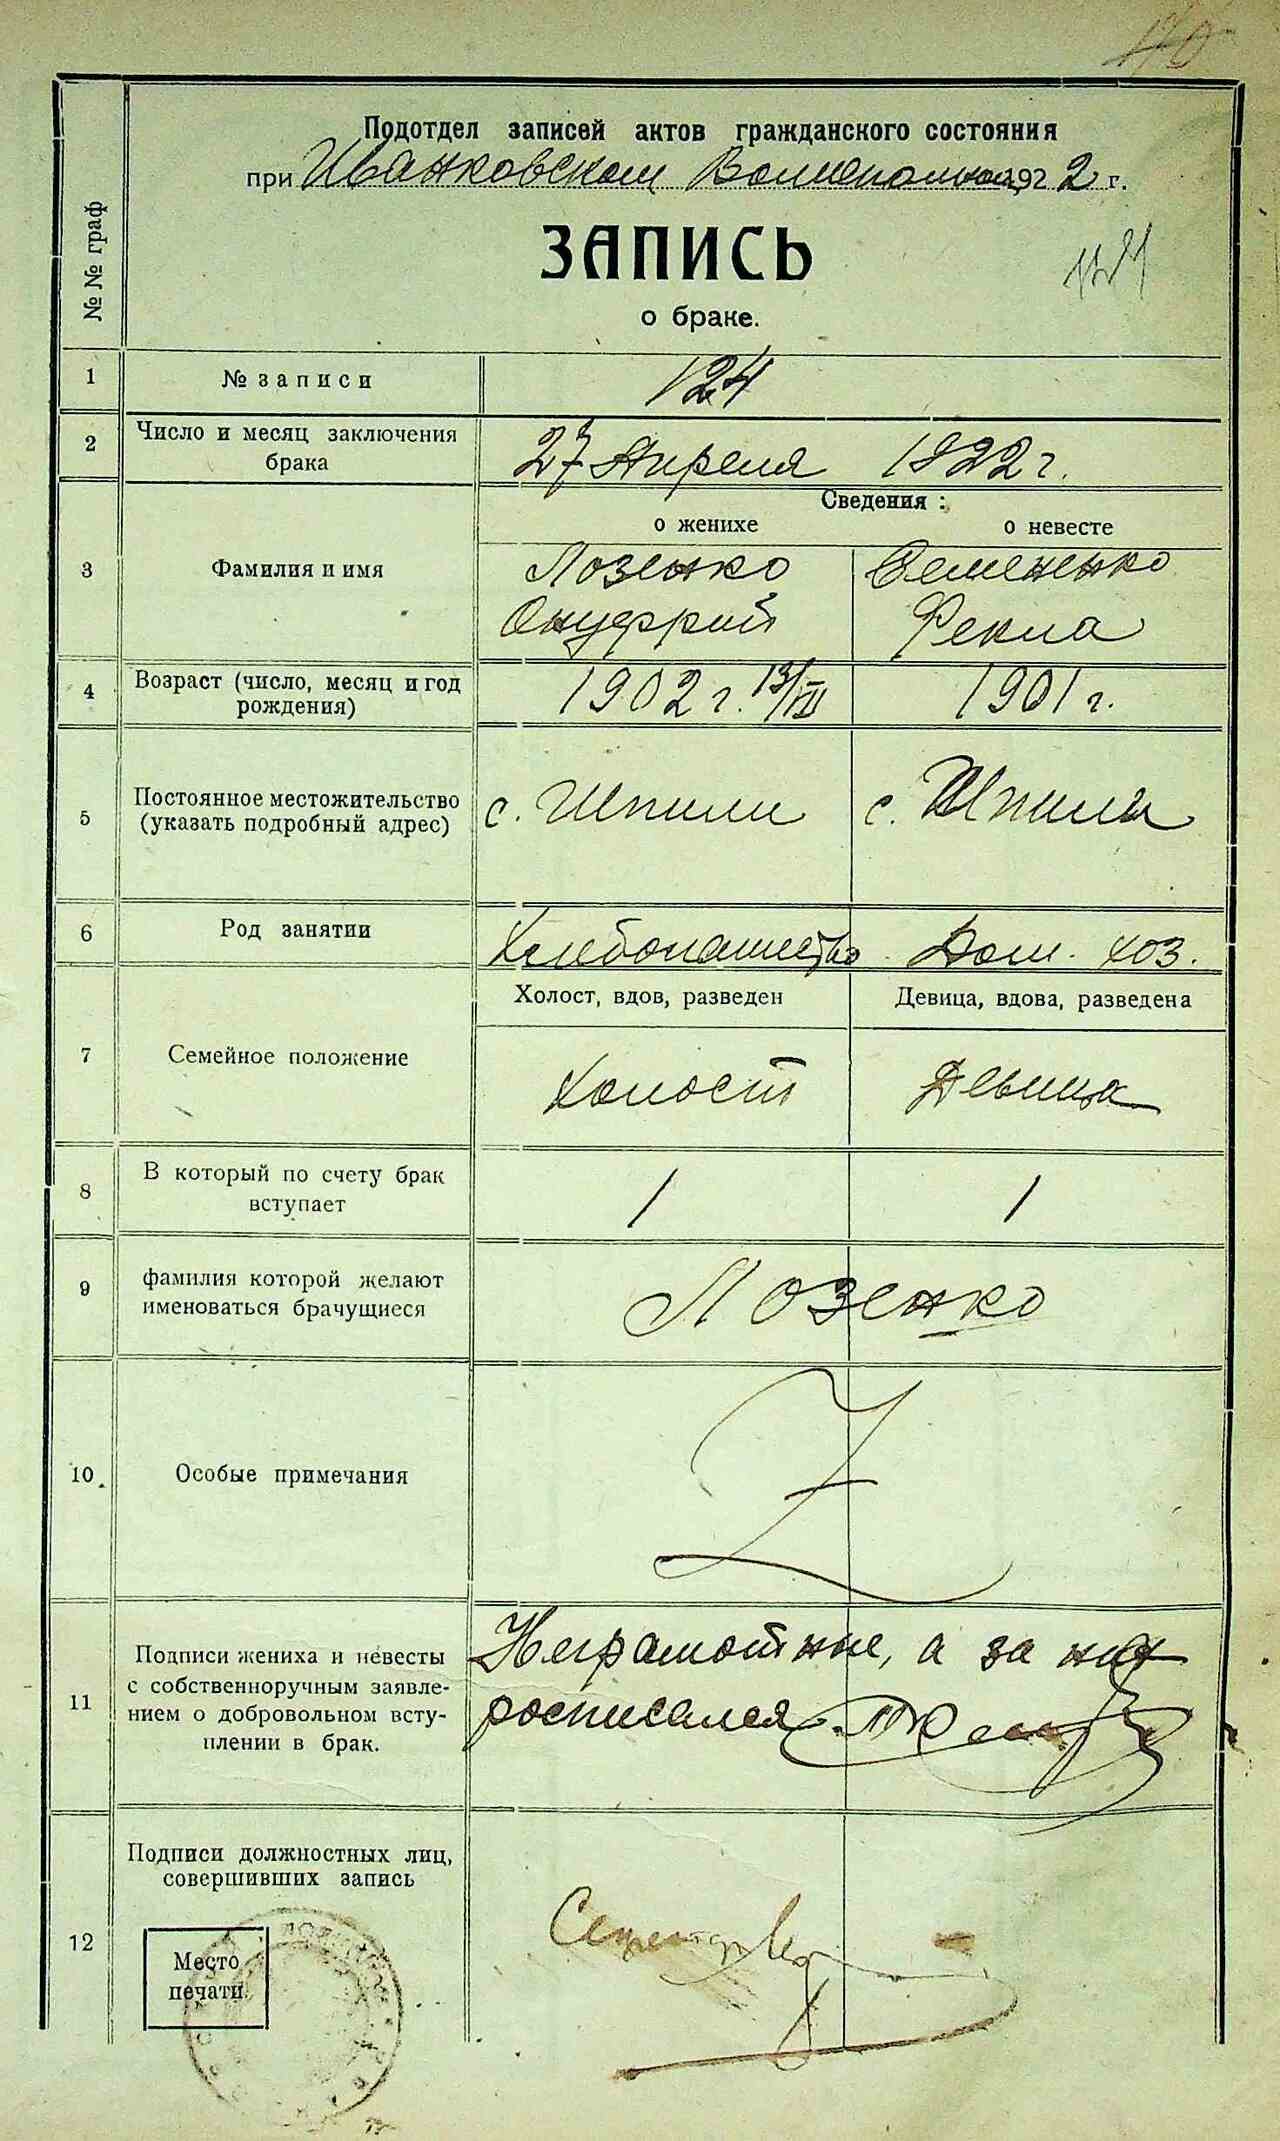 Подотдел записей актов гражданского состояния
при Иванковском 1922 г.
ЗАПИСЬ
о браке.
№№ граф
1 № записи 124
2 Число и месяц заключения
брака
27 Апреля 1922 г.
Сведения:
о женихе о невесте
3 Фамилия и имя
Лозенко Семененко
Онуфрий Фекла
4 Возраст (число, месяц и год
рождения)
1902 г. 1901 г.
5 Постоянное местожительство
(указать подробный адрес)
с. Шпили с. Шпили
6 Род занятии Хлебопашество Дом. хоз.
Холост, вдов, разведен Девица, вдова, разведена
7 Семейное положение
Холост Девица
8 В который по счету брак
вступает
1 1
9 фамилия которой желают
именоваться брачущиеся
Лозенко
10. Особые примечания
Z
11 Подписи жениха и невесты
с собственноручным заявле-
нием о добровольном всту-
плении в брак.
Неграмотные, а за них
росписался
12 Подписи должностных лиц,
совершивших запись
Место
печати.
Секретарь